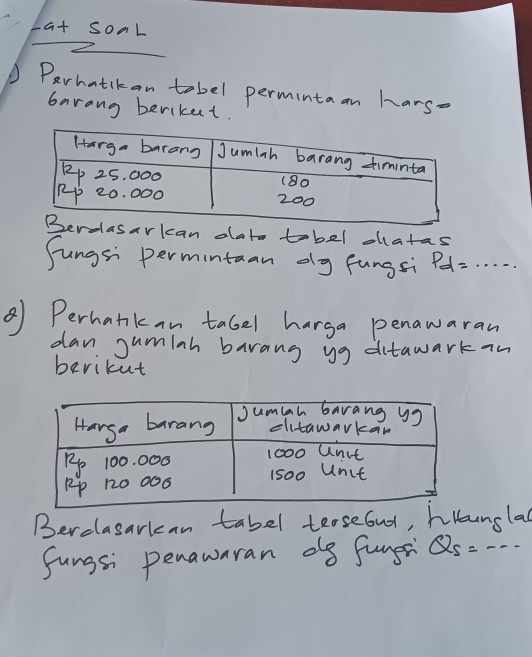 Lat SOAL
) Perhatikan tabel permintaan harga
barang berikut.
Harga barang | Jumlah barang diminta
Rp 25.000 | 180
Rp 20.000 | 200
Berdasarkan data tabel diatas
fungsi permintaan dg fungsi Pd = .....
2) Perhatikan tabel harga penawaran
dan jumlah barang yg ditawarkan
berikut
Harga barang | Jumlah barang yg
ditawarkan
Rp 100.000 | 1000 Unit
Rp 120 000 | 1500 Unit
Berdasarkan tabel tersebut, hitunglah
fungsi penawaran dg fungsi Qs = ---